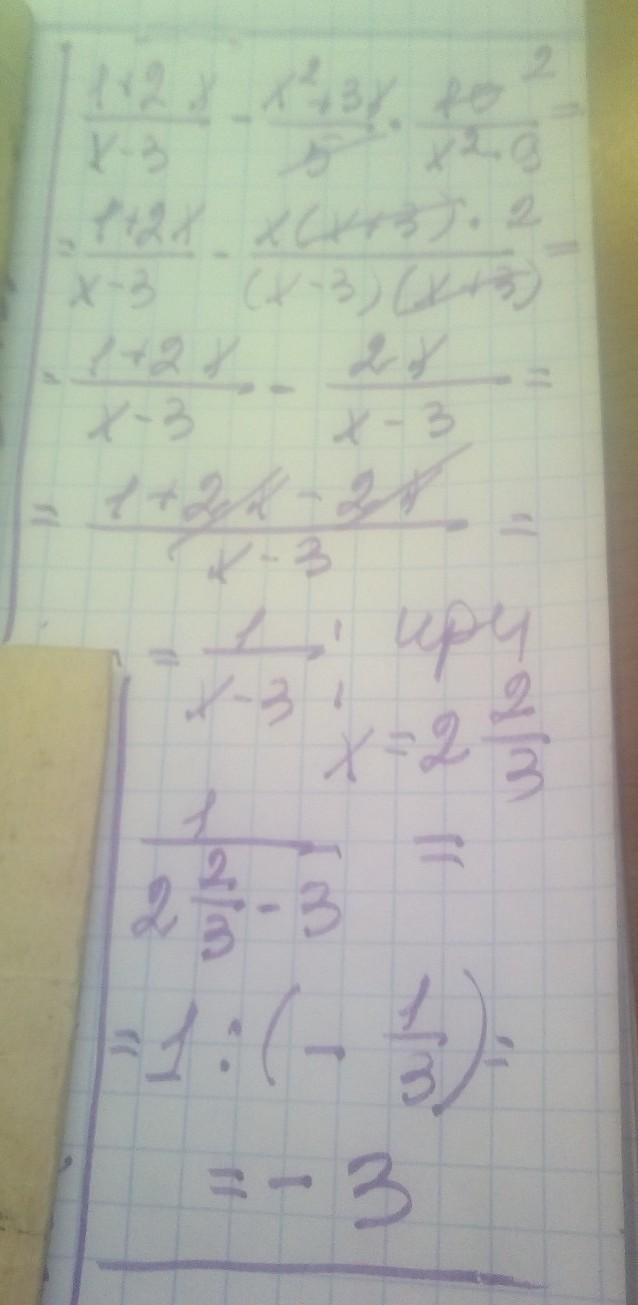 (1+2x)/(x-3) - (x²+3x)/5 · 10 2/(x²-9) =
= (1+2x)/(x-3) - (x(x+3)·2)/((x-3)(x+3)) =
= (1+2x)/(x-3) - 2x/(x-3) =
= (1+2x-2x)/(x-3) =
= 1/(x-3) ; при
x = 2 2/3
1/(2 2/3 - 3) =
= 1 : (- 1/3) =
= - 3